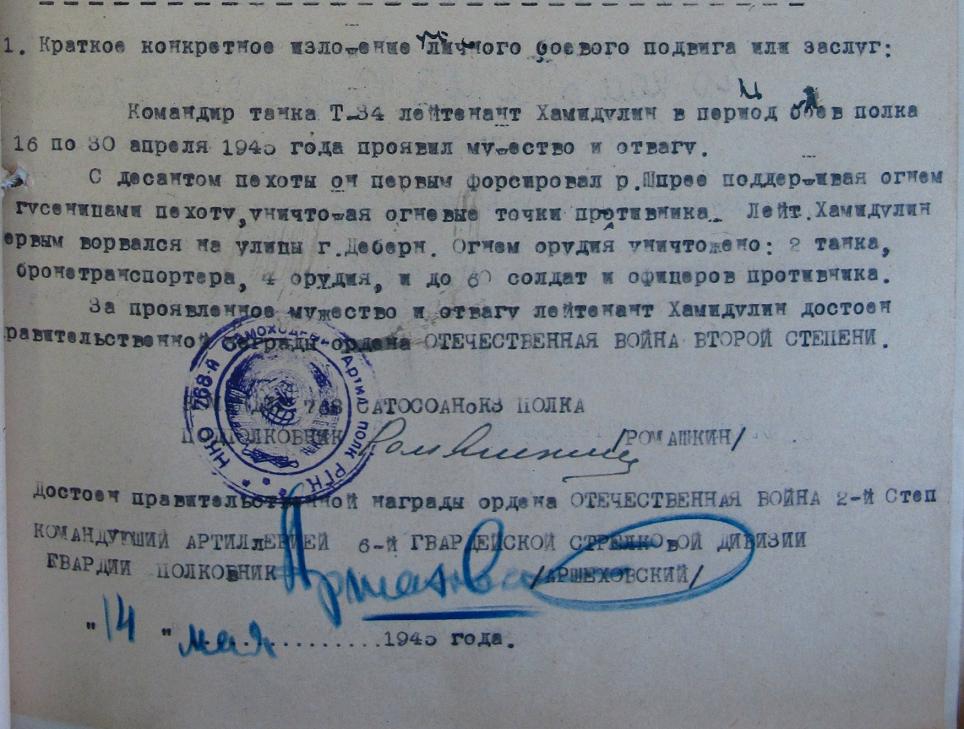 1. Краткое конкретное изложение личного боевого подвига или заслуг:
Командир танка Т-34 лейтенант Хамидулин в период боев полка
16 по 30 апреля 1945 года проявил мужество и отвагу.
С десантом пехоты он первым форсировал р.Шпрее поддерживая огнем
гусеницами пехоту,уничтожая огневые точки противника. Лейт.Хамидулин
ервым ворвался на улицы г.Деберн. Огнем орудия уничтожено: 2 танка,
бронетранспортера, 4 орудия, и до 60 солдат и офицеров противника.
За проявленное мужество и отвагу лейтенант Хамидулин достоен
равительственной награды ордена ОТЕЧЕСТВЕННАЯ ВОЙНА ВТОРОЙ СТЕПЕНИ.
768 САТОСОАНОКЗ ПОЛКА
ПОДПОЛКОВНИК /РОМАШКИН/
НКО 768-й Самоходный Артил. полк РГК
Достоен правительственной награды ордена ОТЕЧЕСТВЕННАЯ ВОЙНА 2-й Степ
КОМАНДУЮЩИЙ АРТИЛЛЕРИЕЙ 6-й ГВАРДЕЙСКОЙ СТРЕЛКОВОЙ ДИВИЗИИ
ГВАРДИИ ПОЛКОВНИК /АРШЕХОВСКИЙ/
"14" мая.........1945 года.